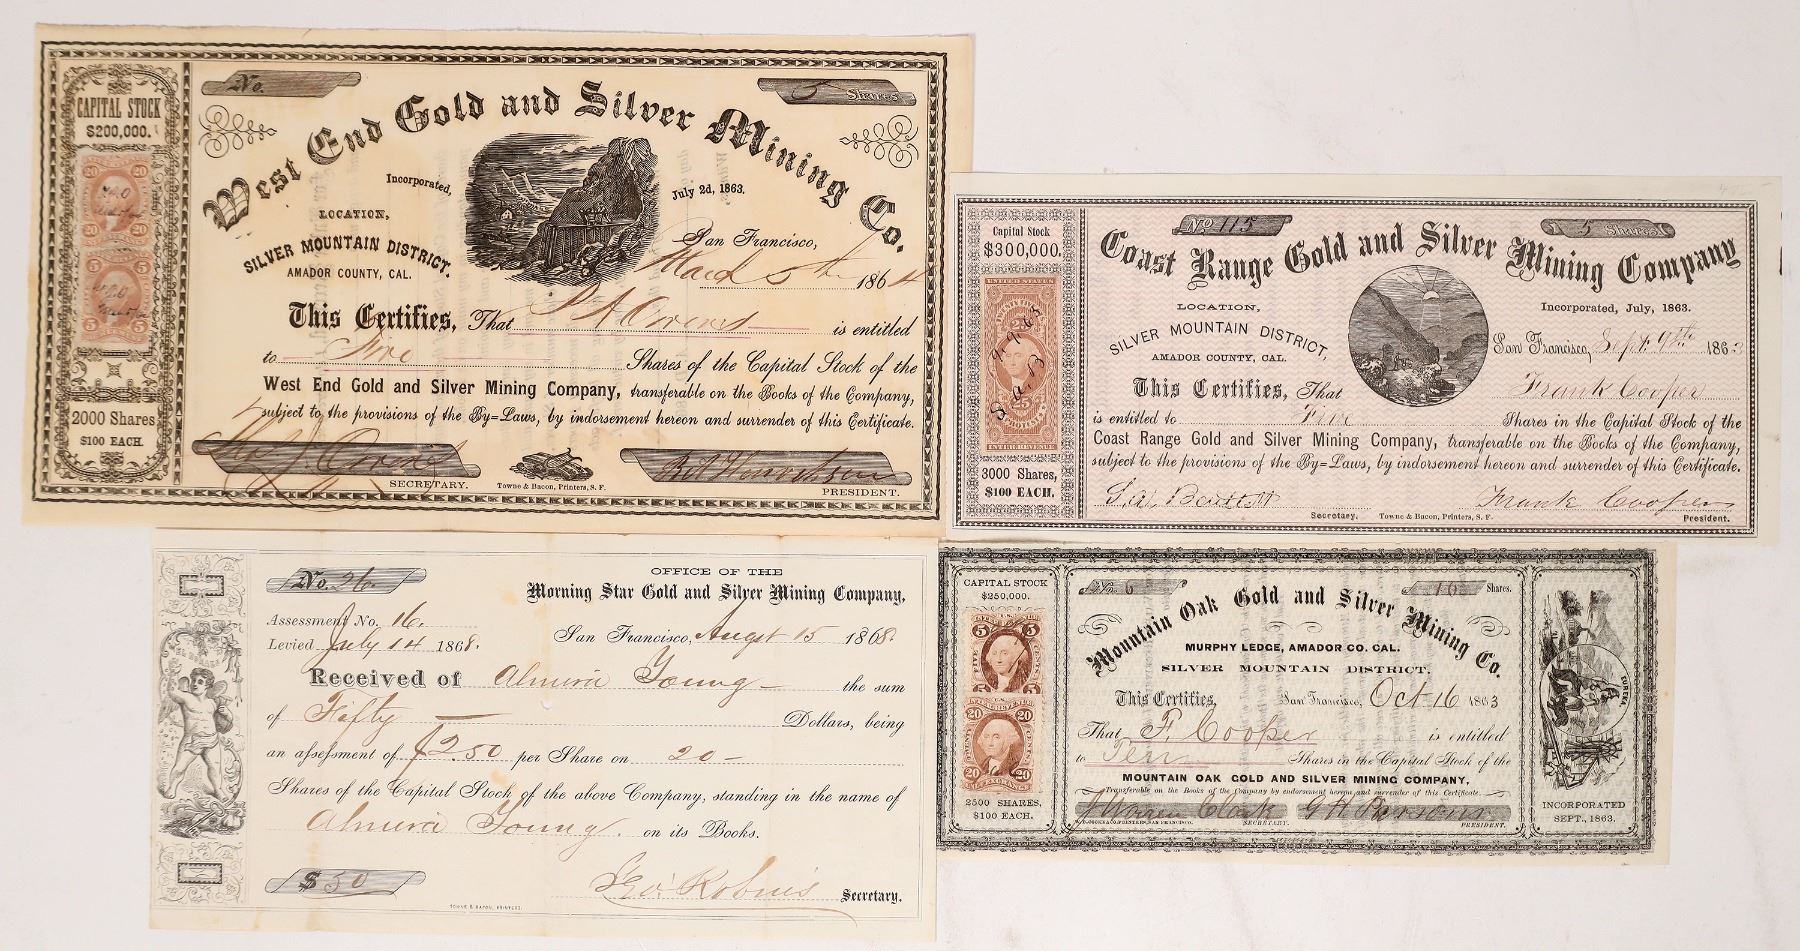 No.
5 Shares.
CAPITAL STOCK
$200,000.
West End Gold and Silver Mining Co.
Incorporated,
July 2d, 1863.
LOCATION,
SILVER MOUNTAIN DISTRICT.
AMADOR COUNTY, CAL.
San Francisco,
March 5th 1864
This Certifies, That P A Owens is entitled
to Five Shares of the Capital Stock of the
West End Gold and Silver Mining Company, transferable on the Books of the Company,
subject to the provisions of the By=Laws, by indorsement hereon and surrender of this Certificate.
2000 Shares
$100 EACH.
SECRETARY.
Towne & Bacon, Printers, S. F.
PRESIDENT.
20 20
20 20
5 5
5 5
Capital Stock
$300,000.
No 115
5 Shares
Coast Range Gold and Silver Mining Company
LOCATION,
SILVER MOUNTAIN DISTRICT,
AMADOR COUNTY, CAL.
Incorporated, July, 1863.
San Francisco, Sept. 9th 1863
This Certifies, That Frank Cooper
is entitled to Five Shares in the Capital Stock of the
Coast Range Gold and Silver Mining Company, transferable on the Books of the Company,
subject to the provisions of the By=Laws, by indorsement hereon and surrender of this Certificate.
UNITED STATES
25
9.9.63
S.A.B
25 25
INTER REVENUE
3000 Shares,
$100 EACH.
Secretary.
Towne & Bacon, Printers, S. F.
Frank Cooper
President.
No. 26.
OFFICE OF THE
Morning Star Gold and Silver Mining Company,
Assessment No. 16.
Levied July 14 1868.
San Francisco, Augst 15 1868.
Received of Almira Young the sum
of Fifty Dollars, being
an assessment of $2.50 per Share on 20
Shares of the Capital Stock of the above Company, standing in the name of
Almira Young. on its Books.
$ 50
Geo. Robins
Secretary.
TOWNE & BACON, PRINTERS.
CAPITAL STOCK
$250,000.
No 6
10 Shares.
Mountain Oak Gold and Silver Mining Co.
MURPHY LEDGE, AMADOR CO. CAL.
SILVER MOUNTAIN DISTRICT.
This Certifies,
San Francisco, Oct 16 1863
That F. Cooper is entitled
to Ten Shares in the Capital Stock of the
MOUNTAIN OAK GOLD AND SILVER MINING COMPANY,
Transferable on the Books of the Company by endorsement hereon, and surrender of this Certificate.
5 5
FIVE CENTS
20 20
20 20
2500 SHARES,
$100 EACH.
SECRETARY.
G H Parsons
PRESIDENT.
EUREKA
INCORPORATED
SEPT., 1863.